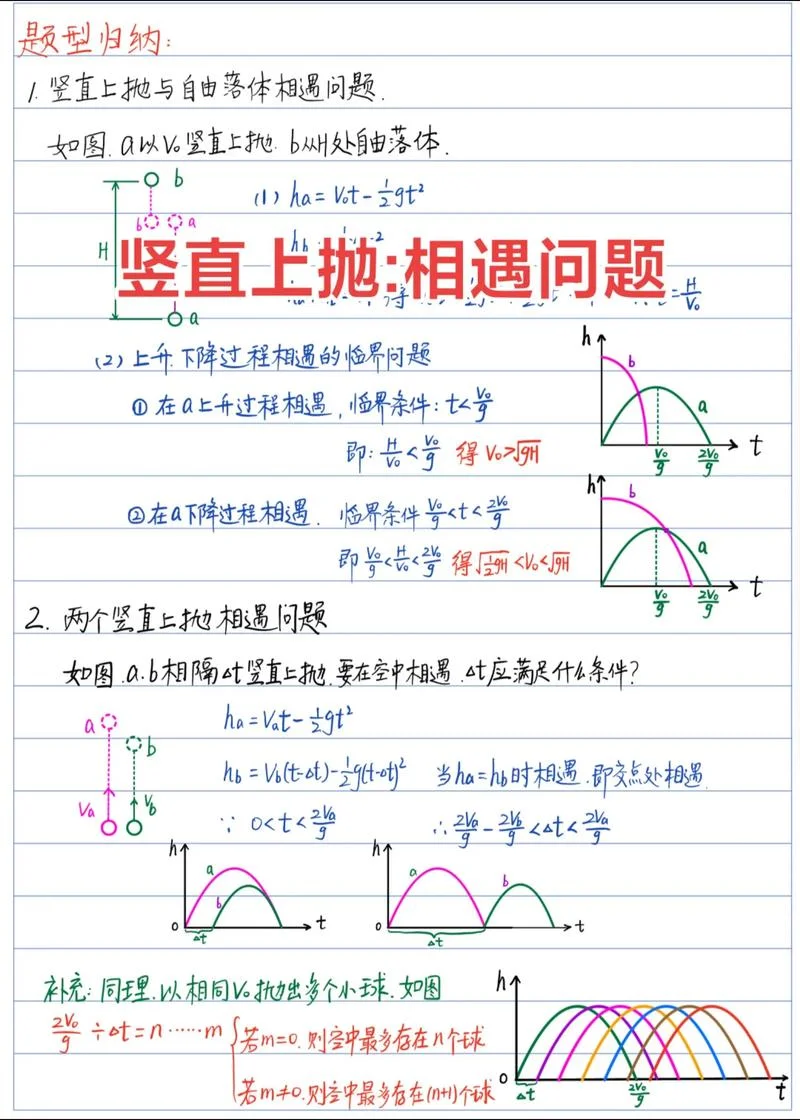 题型归纳:
1. 竖直上抛与自由落体相遇问题.
如图. a以V₀竖直上抛. b从H处自由落体.
b
(1) ha = V₀t - ½gt²
b a
H
竖直上抛:相遇问题
= H/V₀
a
(2) 上升、下降过程相遇的临界问题
① 在a上升过程相遇, 临界条件: t < V₀/g
即: H/V₀ < V₀/g 得 V₀>√gH
h b a t V₀/g 2V₀/g
② 在a下降过程相遇. 临界条件 V₀/g < t < 2V₀/g
即 V₀/g < H/V₀ < 2V₀/g 得 √½gH < V₀ < √gH
h b a t V₀/g 2V₀/g
2. 两个竖直上抛相遇问题
如图. a.b相隔Δt竖直上抛. 要在空中相遇. Δt应满足什么条件?
a b Va Vb
ha = Vat - ½gt²
hb = Vb(t-Δt) - ½g(t-Δt)² 当ha=hb时相遇. 即交点处相遇.
∵ 0 < t < 2Va/g ∴ 2Va/g - 2Vb/g < Δt < 2Va/g
h a b 0 Δt t
h a b 0 Δt t
补充: 同理. 以相同V₀抛出多个小球. 如图
2V₀/g ÷ Δt = n ······ m
若m=0. 则空中最多存在n个球
若m≠0. 则空中最多存在(n+1)个球
h 0 Δt 2V₀/g t